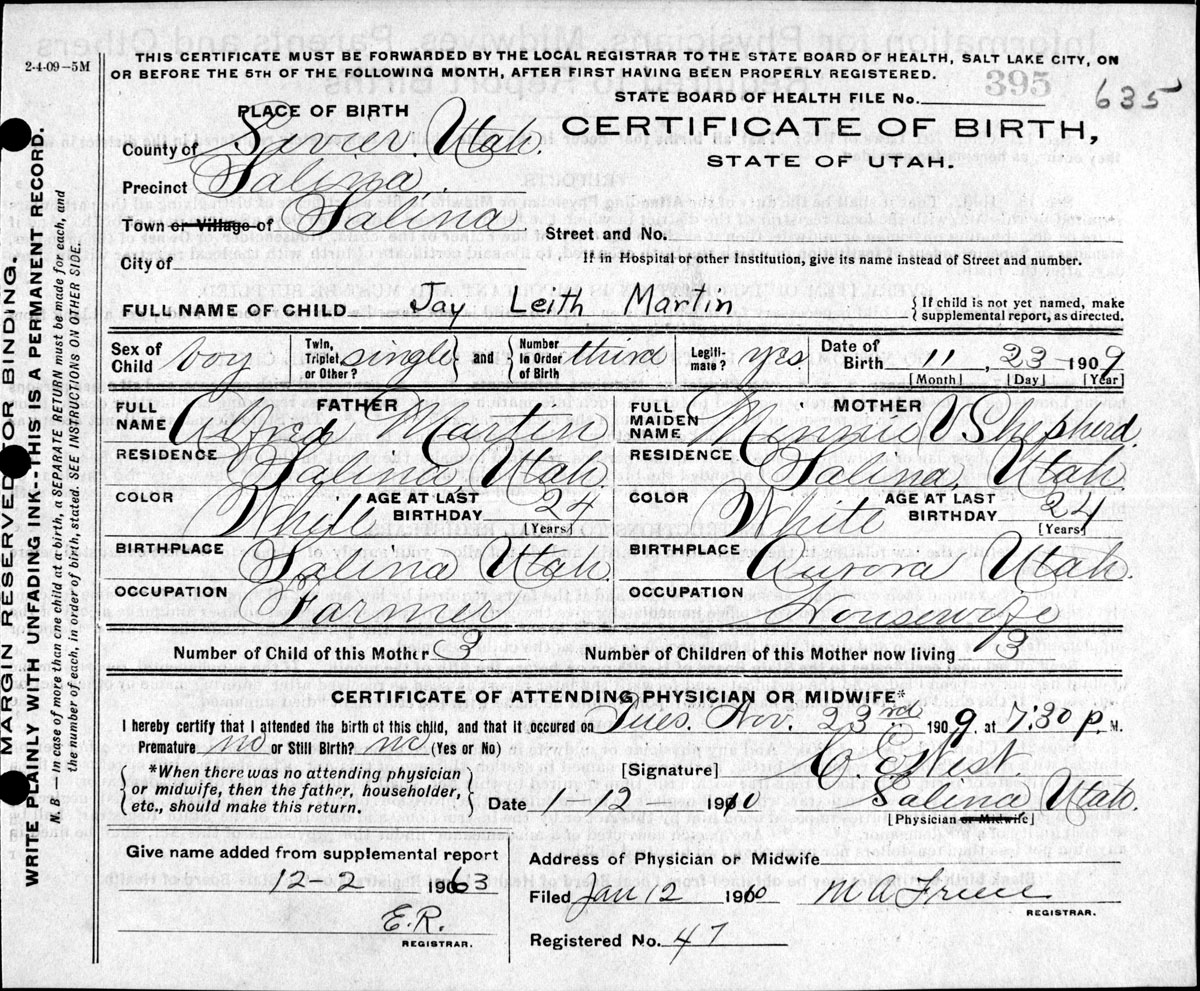 2-4-09-5M
THIS CERTIFICATE MUST BE FORWARDED BY THE LOCAL REGISTRAR TO THE STATE BOARD OF HEALTH, SALT LAKE CITY, ON
OR BEFORE THE 5TH OF THE FOLLOWING MONTH, AFTER FIRST HAVING BEEN PROPERLY REGISTERED.
STATE BOARD OF HEALTH FILE No. 395 635
PLACE OF BIRTH
CERTIFICATE OF BIRTH,
STATE OF UTAH.
County of Sevier, Utah.
Precinct Salina,
Town or Village of Salina
Street and No.
City of
If in Hospital or other Institution, give its name instead of Street and number.
FULL NAME OF CHILD Jay Leith Martin {If child is not yet named, make
supplemental report, as directed.
Sex of Child boy Twin, Triplet, or Other? single and Number in Order of Birth third Legiti-mate? yes Date of Birth 11, 23 1909
[Month] [Day] [Year]
FATHER
FULL NAME Alfred Martin
RESIDENCE Salina, Utah.
COLOR White AGE AT LAST BIRTHDAY 24
[Years]
BIRTHPLACE Salina Utah.
OCCUPATION Farmer
MOTHER
FULL MAIDEN NAME Minnie V Shepherd.
RESIDENCE Salina, Utah.
COLOR White AGE AT LAST BIRTHDAY 24
[Years]
BIRTHPLACE Aurora Utah.
OCCUPATION Housewife
Number of Child of this Mother 3 Number of Children of this Mother now living 3
CERTIFICATE OF ATTENDING PHYSICIAN OR MIDWIFE*
I hereby certify that I attended the birth of this child, and that it occured on Tues. Nov. 23rd 1909, at 7.30 p. M.
Premature no or Still Birth? no (Yes or No)
{*When there was no attending physician
or midwife, then the father, householder,
etc., should make this return.}
[Signature] C. E. West.
Date 1-12- 1910 Salina Utah.
[Physician or Midwife]
Give name added from supplemental report
12-2 1963
E.R.
REGISTRAR.
Address of Physician or Midwife
Filed Jan 12 1910
REGISTRAR.
Registered No. 47
MARGIN RESERVED FOR BINDING.
WRITE PLAINLY WITH UNFADING INK--THIS IS A PERMANENT RECORD.
N. B.—In case of more than one child at a birth, a SEPARATE RETURN must be made for each, and
the number of each, in order of birth, stated. SEE INSTRUCTIONS ON OTHER SIDE.